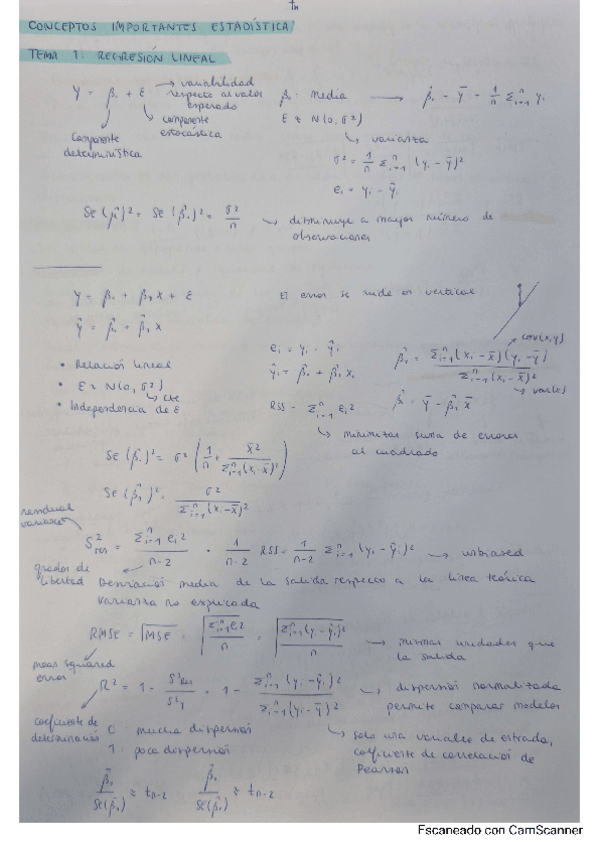 CONCEPTOS IMPORTANTES ESTADÍSTICA
TEMA 1: REGRESIÓN LINEAL
Y = β₀ + ε → variabilidad respecto al valor esperado
componente determinística
componente estocástica
β₀: Media → β̂₀ = ȳ = 1/n Σⁿᵢ₌₁ yᵢ
ε ~ N(0, σ²)
↳ varianza
σ² = 1/n Σⁿᵢ₌₁ (yᵢ - ȳ)²
eᵢ = yᵢ - ŷᵢ
Se(μ̂)² = Se(β̂₀)² = σ²/n → disminuye a mayor número de observaciones
Y = β₀ + β₁x + ε
El error se mide en vertical
ŷ = β̂₀ + β̂₁x
• Relación lineal
• ε ~ N(0, σ²)
↳ cte
• Independencia de ε
eᵢ = yᵢ - ŷᵢ
ŷᵢ = β̂₀ + β̂₁xᵢ
RSS = Σⁿᵢ₌₁ eᵢ²
↳ minimizar suma de errores al cuadrado
β̂₁ = Σⁿᵢ₌₁(xᵢ - x̄)(yᵢ - ȳ) / Σⁿᵢ₌₁(xᵢ - x̄)²
cov(x,y)
var(x)
β̂₀ = ȳ - β̂₁x̄
SE(β̂₀)² = σ² (1/n + x̄² / Σⁿᵢ₌₁(xᵢ - x̄)²)
SE(β̂₁)² = σ² / Σⁿᵢ₌₁(xᵢ - x̄)²
residual variance
S²res = Σⁿᵢ₌₁ eᵢ² / n-2 = 1/n-2 RSS = 1/n-2 Σⁿᵢ₌₁ (yᵢ - ŷᵢ)² → unbiased
grados de libertad
Desviación media de la salida respecto a la línea teórica
Varianza no explicada
RMSE = √MSE = √(Σⁿᵢ₌₁ eᵢ² / n) = √(Σⁿᵢ₌₁(yᵢ - ŷᵢ)² / n) → mismas unidades que la salida
mean squared error
R² = 1 - S²Res / S²y = 1 - Σⁿᵢ₌₁(yᵢ - ŷᵢ)² / Σⁿᵢ₌₁(yᵢ - ȳ)² → dispersión normalizada permite comparar modelos
coeficiente de determinación
0: mucha dispersión
1: poca dispersión
↳ solo una variable de entrada, coeficiente de correlación de Pearson
β̂₁ / SE(β̂₁) ≈ tₙ₋₂
β̂₀ / SE(β̂₀) ≈ tₙ₋₂
Escaneado con CamScanner